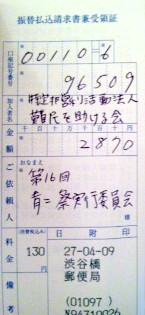 振替払込請求書兼受領証
口座記号番号
00110=6
96509
加入者名
特定非営利活動法人
難民を助ける会
金額
千 百 十 万 千 百 十 円
2870
ご依頼人
おなまえ
第16回
様
料金
(消費税込み)
130
円
日附印
27-04-09
渋谷橋
郵便局
(01097)
N94310026
備考